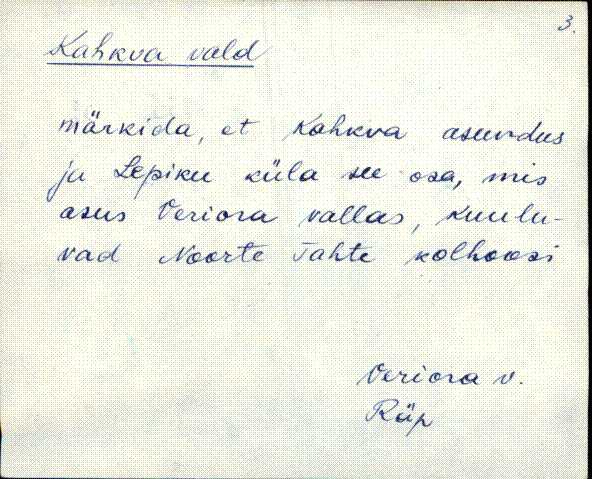 3.
Kahkva vald
märkida, et Kahkva asundus
ja Lepiku küla see osa, mis
asus Veriora vallas, kuulu-
vad Noorte Tahte kolhoosi
Veriora v.
Räp